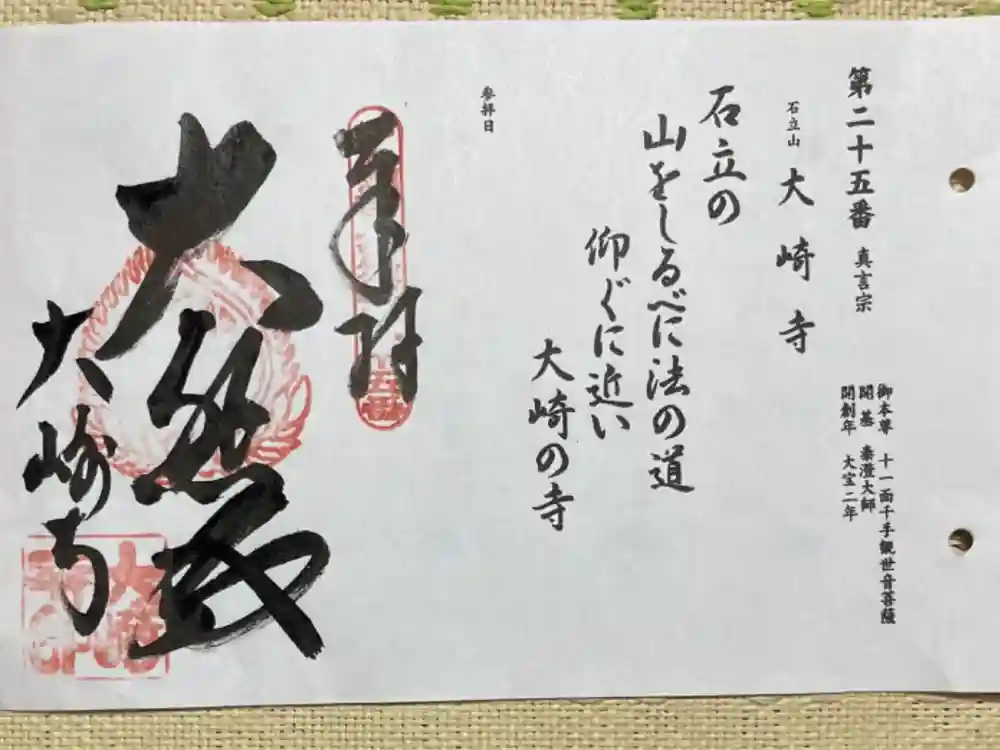 第二十五番 真言宗
御本尊 十一面千手観世音菩薩
開基 泰澄大師
開創年 大宝二年
石立山 大崎寺
石立の
山をしるべに法の道
仰ぐに近い
大崎の寺
参拝日
奉拝
大悲殿
大崎寺